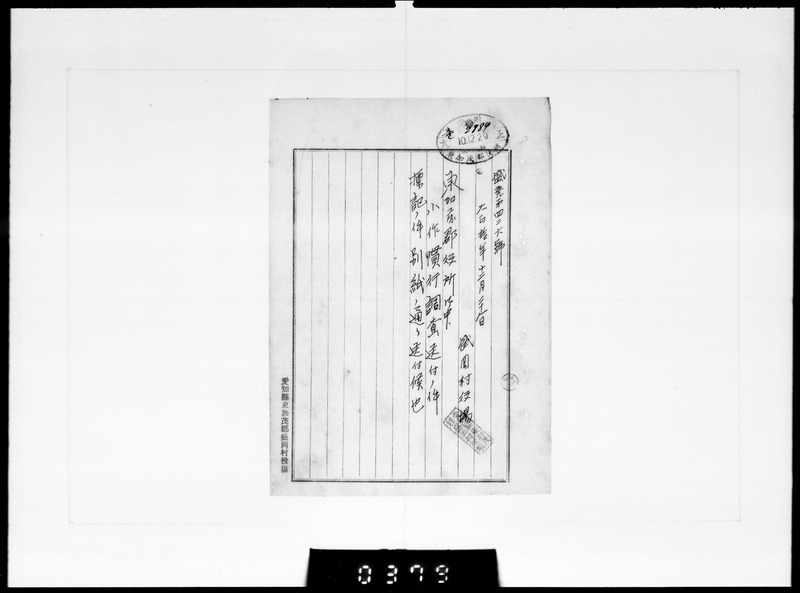 盛発第四二六號
大正拾年十二月二十八日
盛岡村役場
東加茂郡役所御中
小作慣行調査送付ノ件
標記ノ件別紙ノ通リ送付候也
愛知縣東加茂郡盛岡村役場
3989
10.12.29
0379